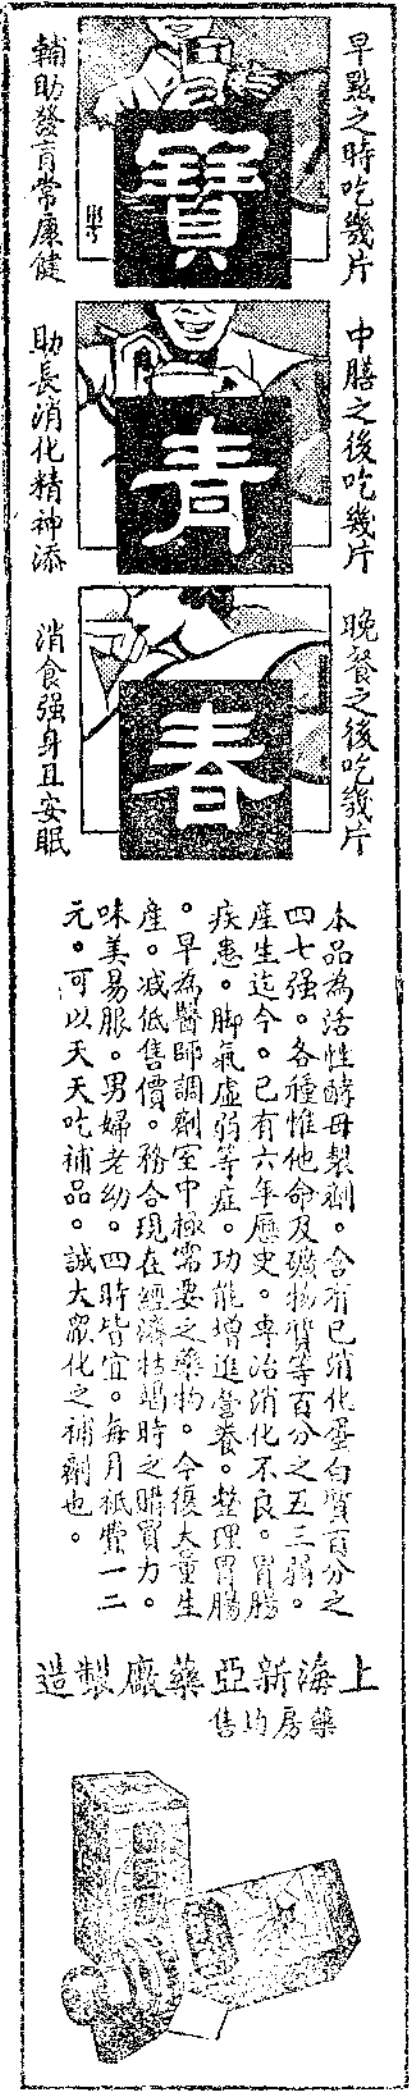 早點之時吃幾片
輔助發育常康健
寶
中膳之後吃幾片
助長消化精神添
青
晚餐之後吃幾片
消食强身且安眠
春
本品為活性酵母製劑。含有已消化蛋白質百分之
四七强。各種惟他命及礦物質等百分之五三弱。
產生迄今。已有六年歷史。專治消化不良。胃腸
疾患。脚氣虛弱等症。功能增進營養。整理胃腸
。早為醫師調劑室中極需要之藥物。今復大量生
產。减低售價。務合現在經濟枯竭時之購買力。
味美易服。男婦老幼。四時皆宜。每月祇費一二
元。可以天天吃補品。誠大眾化之補劑也。
上海新亞藥廠製造
藥房均售